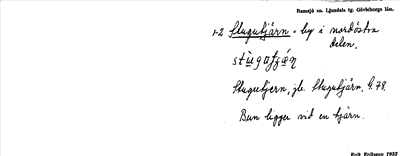 Ramsjö sn. Ljusdals tg. Gävleborgs län.
1-2 Stugutjärn - by i nordöstra
delen.
Stugutjern, jfr Stugutjärn. G. 78.
Byn ligger vid en tjärn.
Erik Eriksson 1933